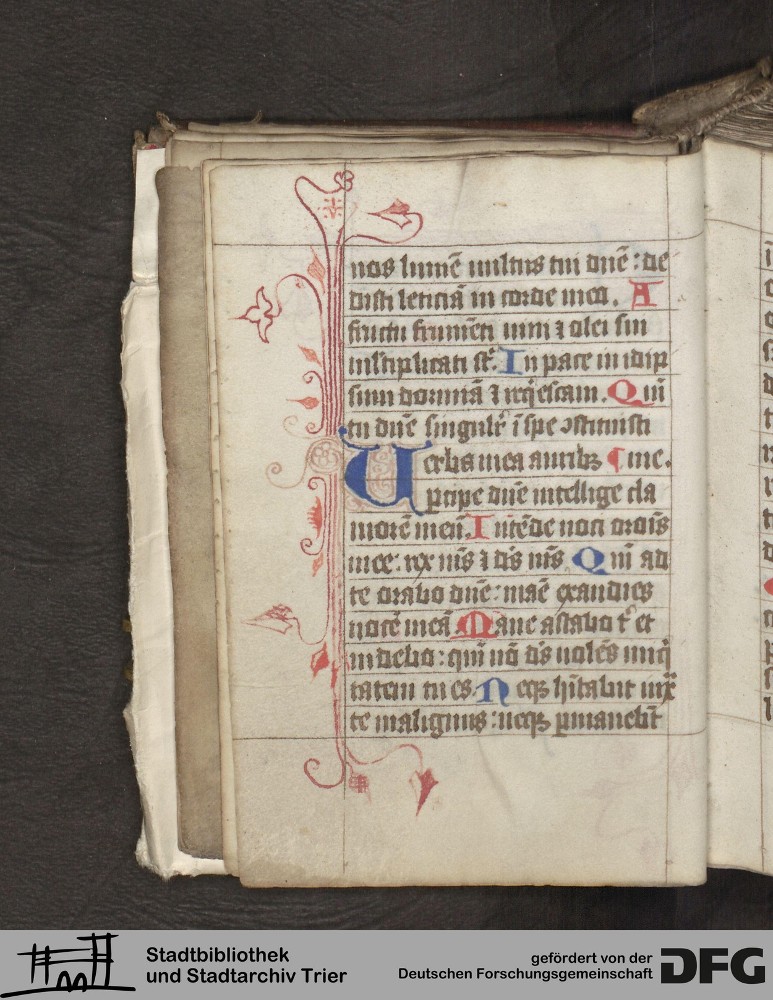 nos lumē uultus tui dn̄e : de
disti leticiā in corde meo. A
fructu frumēti uini ⁊ olei sui
multiplicati st̄. In pace in idip
sum dormiā ⁊ reqescam. Qm̄
tu dn̄e singulr̄ ī spe ꝯstituisti
Uerba mea auribꝫ ¶ me.
ꝑcipe dn̄e intellige cla
morē meū. Intēde uoci orōis
mee : rex m̄s ⁊ d̄s m̄s Qm̄ ad
te orabo dn̄e : mae exaudies
uocē meā Mane astabo t̄ et
uidebo : qm̄ nō d̄s uolēs iniq̄
tatem tu es. Neqꝫ hītabit iux̄
te malignus : neqꝫ ꝑmanebūt
Stadtbibliothek
und Stadtarchiv Trier
gefördert von der
Deutschen Forschungsgemeinschaft
DFG